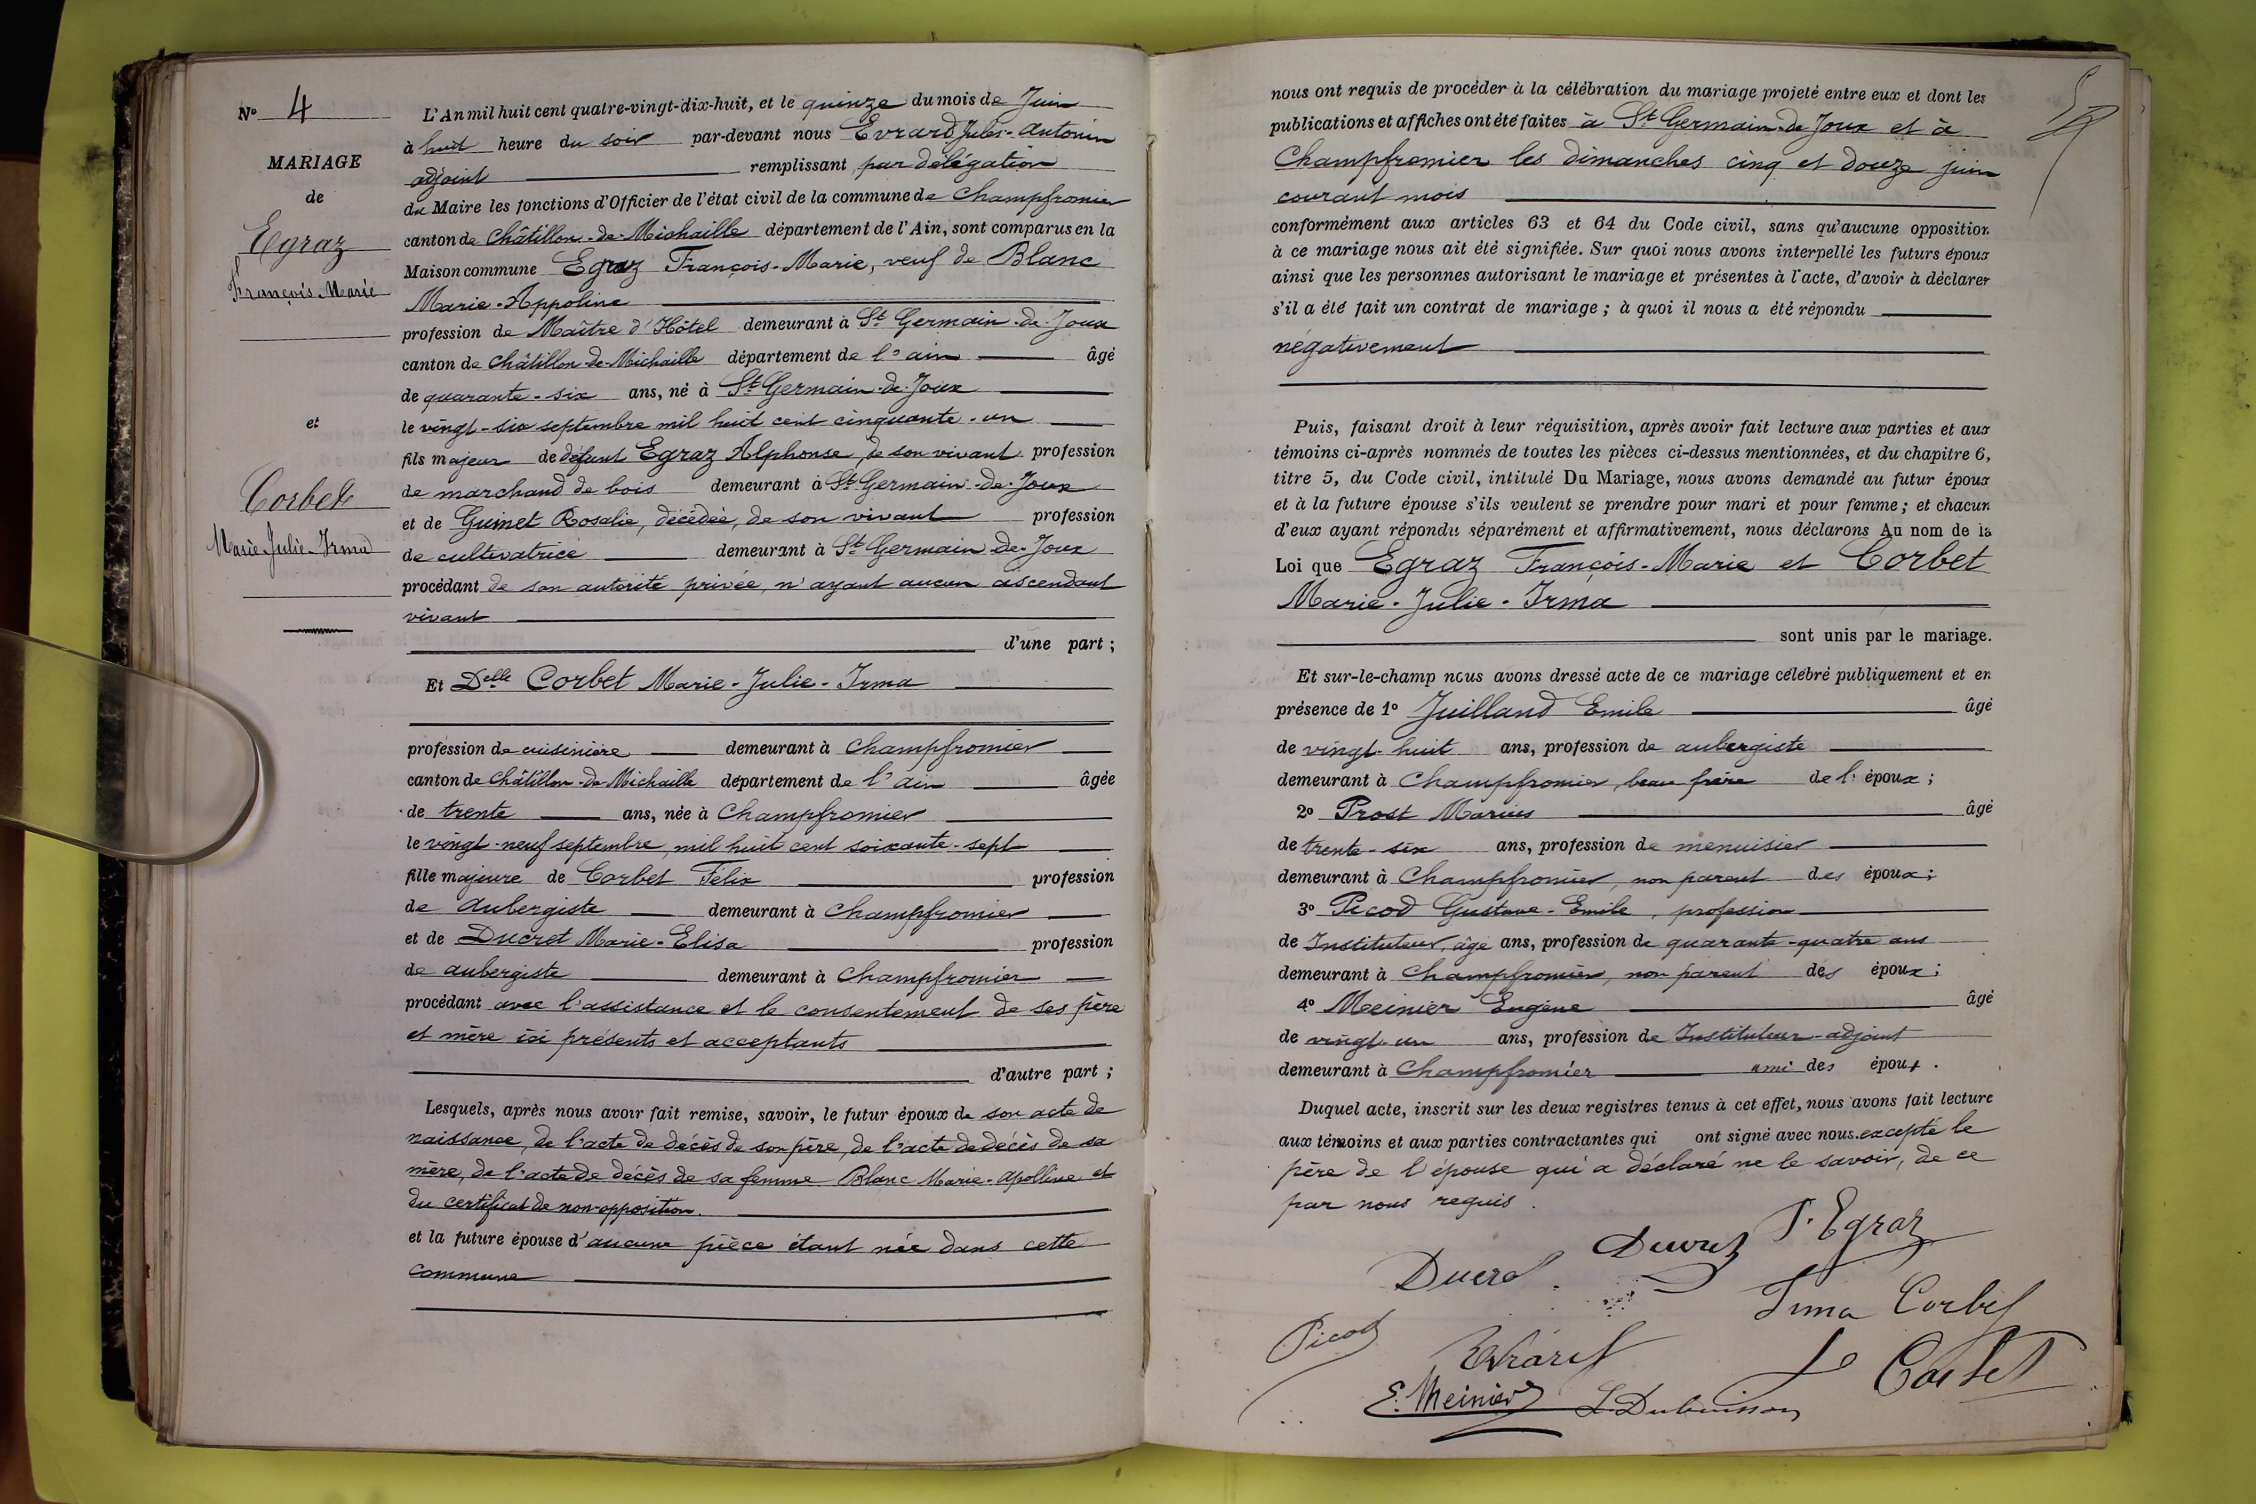 N° 4
MARIAGE
de
Egraz
François Marie
et
Corbet
Marie-Julie-Irma
L'An mil huit cent quatre-vingt-dix-huit, et le quinze du mois de Juin
à huit heure du soir par-devant nous Evrard Jules-Antonin
adjoint remplissant par délégation
du Maire les fonctions d'Officier de l'état civil de la commune de Champfromier
canton de Châtillon-de-Michaille département de l'Ain, sont comparus en la
Maison commune Egraz François-Marie, veuf de Blanc
Marie-Appoline
profession de Maître d'Hôtel demeurant à St Germain-de-Joux
canton de Châtillon-de-Michaille département de l'ain âgé
de quarante-six ans, né à St Germain-de-Joux
le vingt-six septembre mil huit cent cinquante-un
fils majeur de défunt Egraz Alphonse, de son vivant profession
de marchand de bois demeurant à St Germain-de-Joux
et de Guinet Rosalie, décédée, de son vivant profession
de cultivatrice demeurant à St Germain-de-Joux
procédant de son autorité privée, n'ayant aucun ascendant
vivant
d'une part ;
Et Delle Corbet Marie-Julie-Irma
profession de cuisinière demeurant à Champfromier
canton de Châtillon-de-Michaille département de l'ain âgée
de trente ans, née à Champfromier
le vingt-neuf septembre, mil huit cent soixante-sept
fille majeure de Corbet Félix profession
de Aubergiste demeurant à Champfromier
et de Ducret Marie-Elisa profession
de aubergiste demeurant à Champfromier
procédant avec l'assistance et le consentement de ses père
et mère ici présents et acceptants
d'autre part ;
Lesquels, après nous avoir fait remise, savoir, le futur époux de son acte de
naissance, de l'acte de décès de son père, de l'acte de décès de sa
mère, de l'acte de décès de sa femme Blanc Marie-Apolline et
du certificat de non-opposition.
et la future épouse d'aucune pièce étant née dans cette
commune
nous ont requis de procéder à la célébration du mariage projeté entre eux et dont les
publications et affiches ont été faites à St Germain-de-Joux et à
Champfromier les dimanches cinq et douze juin
courant mois
conformément aux articles 63 et 64 du Code civil, sans qu'aucune opposition
à ce mariage nous ait été signifiée. Sur quoi nous avons interpellé les futurs époux
ainsi que les personnes autorisant le mariage et présentes à l'acte, d'avoir à déclarer
s'il a été fait un contrat de mariage ; à quoi il nous a été répondu
négativement
Puis, faisant droit à leur réquisition, après avoir fait lecture aux parties et aux
témoins ci-après nommés de toutes les pièces ci-dessus mentionnées, et du chapitre 6,
titre 5, du Code civil, intitulé Du Mariage, nous avons demandé au futur époux
et à la future épouse s'ils veulent se prendre pour mari et pour femme ; et chacun
d'eux ayant répondu séparément et affirmativement, nous déclarons Au nom de la
Loi que Egraz François-Marie et Corbet
Marie-Julie-Irma
sont unis par le mariage.
Et sur-le-champ nous avons dressé acte de ce mariage célébré publiquement et en
présence de 1° Juilland Emile âgé
de vingt-huit ans, profession de aubergiste
demeurant à Champfromier, beau frère de l'époux ;
2° Prost Marius âgé
de trente-six ans, profession de menuisier
demeurant à Champfromier, non parent des époux ;
3° Picod Gustave-Emile, profession
de Instituteur, âgé ans, profession de quarante-quatre ans
demeurant à Champfromier, non parent des époux ;
4° Meinier Eugène âgé
de vingt-un ans, profession de Instituteur-adjoint
demeurant à Champfromier ami des époux.
Duquel acte, inscrit sur les deux registres tenus à cet effet, nous avons fait lecture
aux témoins et aux parties contractantes qui ont signé avec nous. excepté le
père de l'épouse qui a déclaré ne le savoir, de ce
par nous requis.
Ducret F. Egraz
Ducret
Irma Corbet
Picod
Evrard
Corbet
E. Meinier L. Dubuisson